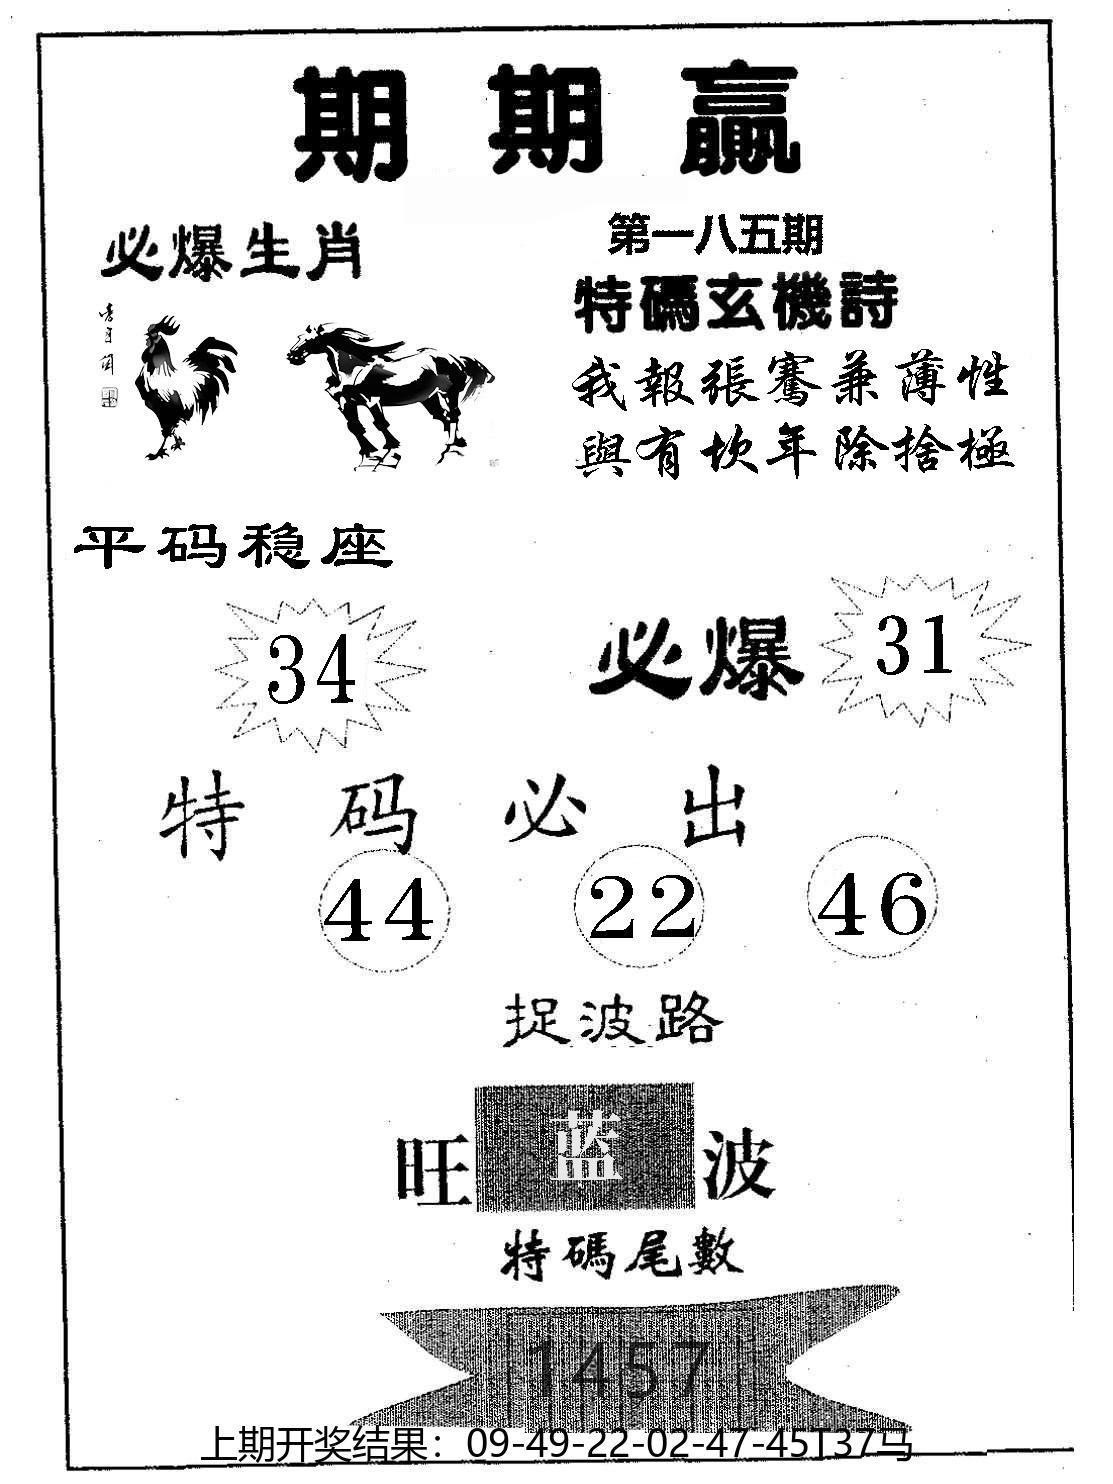 期期贏
必爆生肖
第一八五期
特碼玄機詩
我報張騫兼薄性
與有坎年除捨極
平码稳座
34
必爆
31
特码必出
44 22 46
捉波路
旺蓝波
特碼尾數
1457
上期开奖结果：09-49-22-02-47-45T37马